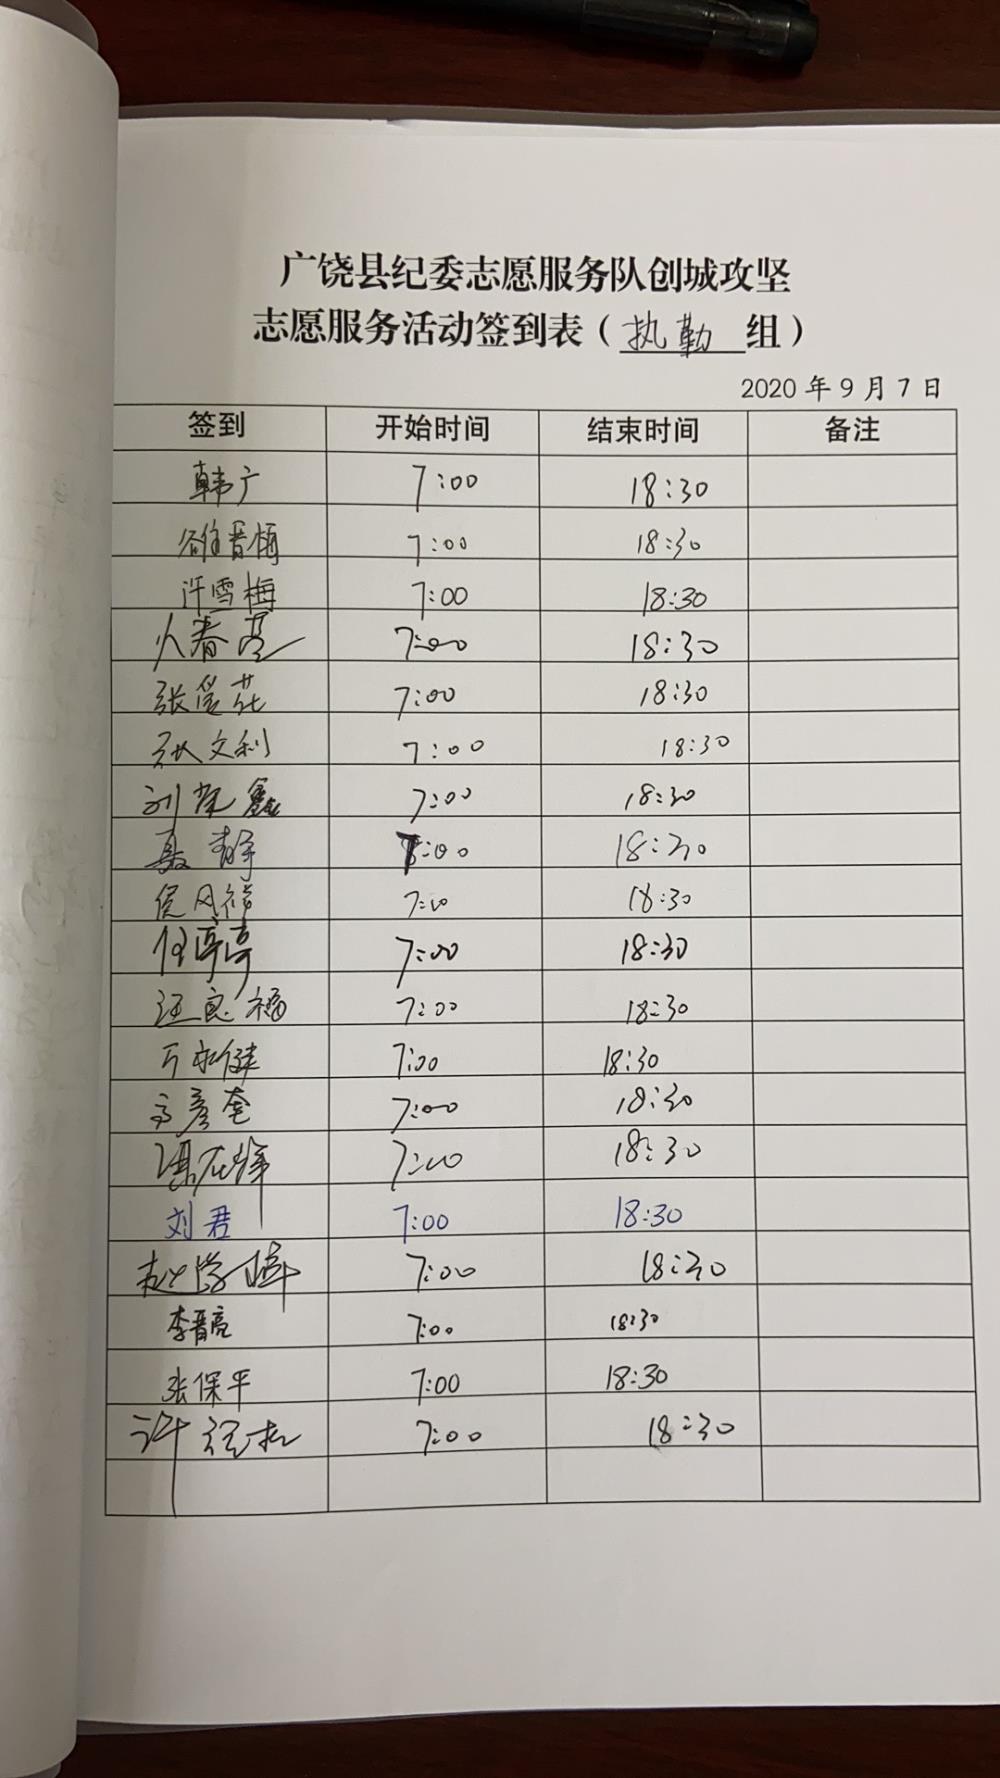 广饶县纪委志愿服务队创城攻坚
志愿服务活动签到表（执勤组）
2020 年 9 月 7 日
签到 开始时间 结束时间 备注
韩广 7:00 18:30
7:00 18:30
许雪梅 7:00 18:30
春 7:00 18:30
张爱花 7:00 18:30
张文利 7:00 18:30
刘荣鑫 7:00 18:30
聂静 7:00 18:30
侯风 7:00 18:30
任亭亭 7:00 18:30
汪良福 7:00 18:30
健 7:00 18:30
高彦奎 7:00 18:30
7:00 18:30
刘君 7:00 18:30
赵 7:00 18:30
李晋亮 7:00 18:30
张保平 7:00 18:30
许 7:00 18:30